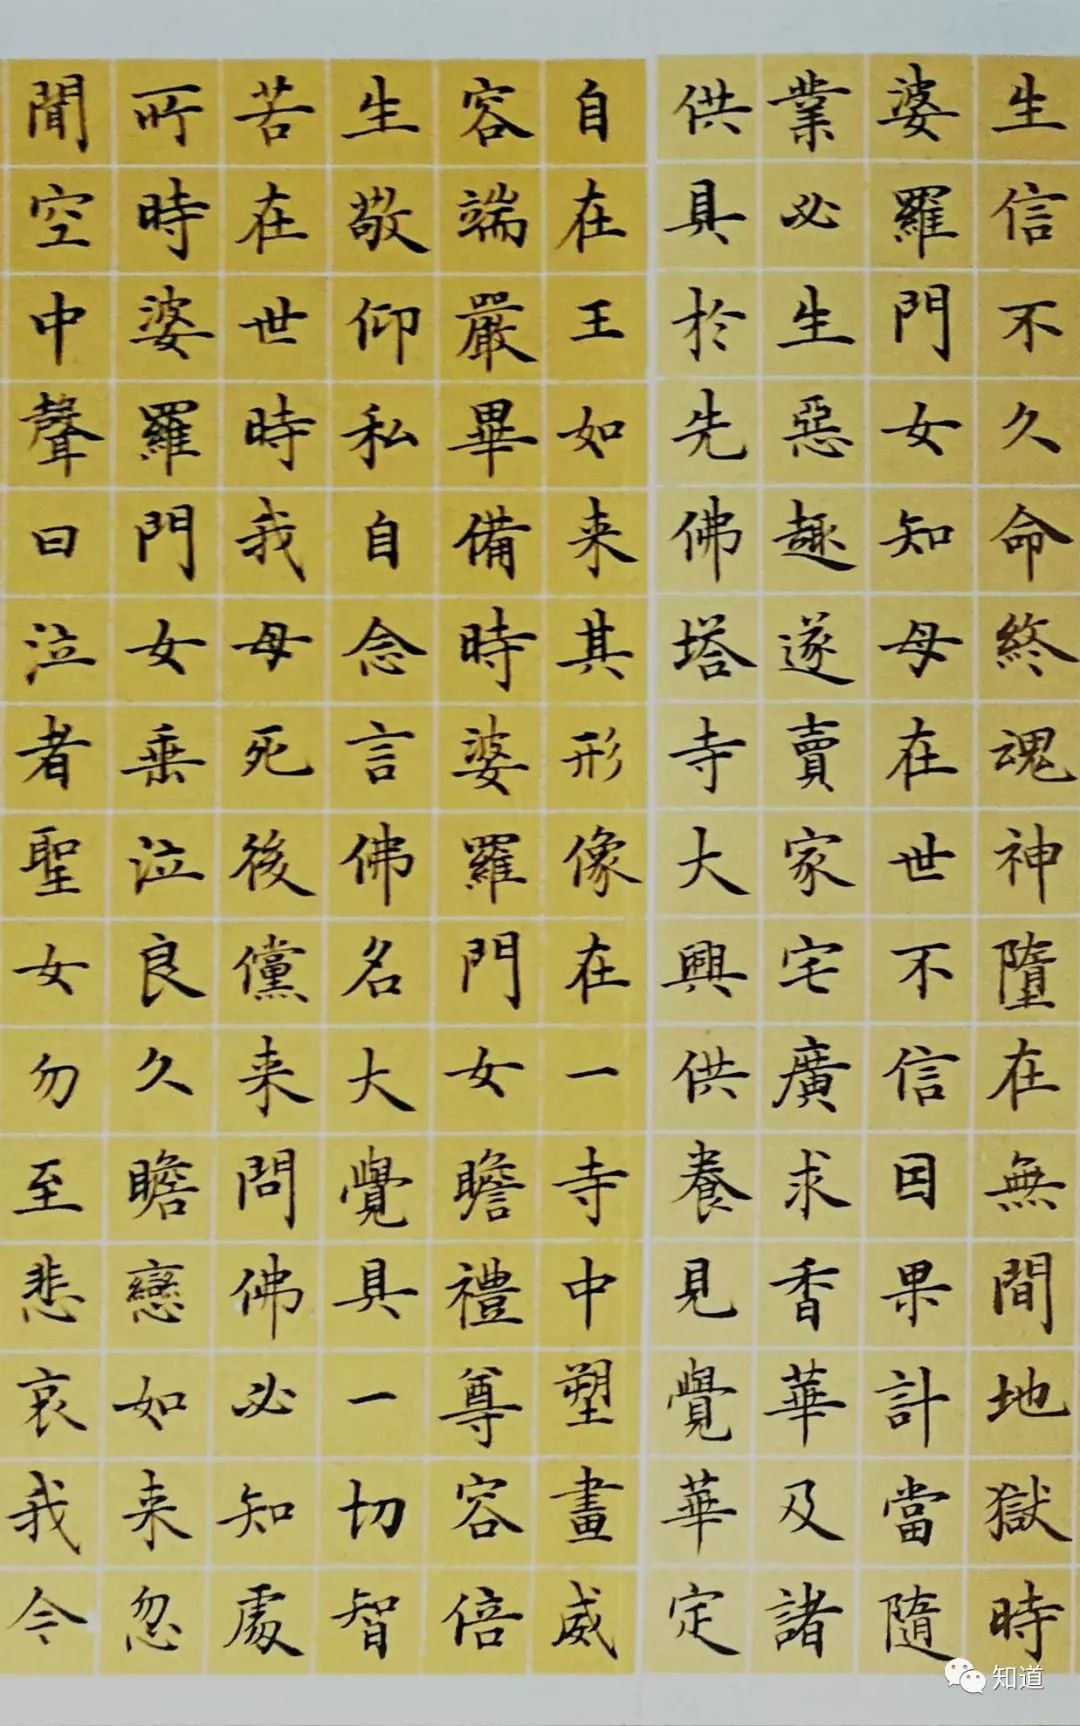 生信不久命終魂神墮在無間地獄時
婆羅門女知母在世不信因果計當隨
業必生惡趣遂賣家宅廣求香華及諸
供具於先佛塔寺大興供養見覺華定
自在王如来其形像在一寺中塑畫威
容端嚴畢備時婆羅門女瞻禮尊容倍
生敬仰私自念言佛名大覺具一切智
若在世時我母死後儻来問佛必知處
所時婆羅門女垂泣良久瞻戀如来忽
聞空中聲曰泣者聖女勿至悲哀我今
知道